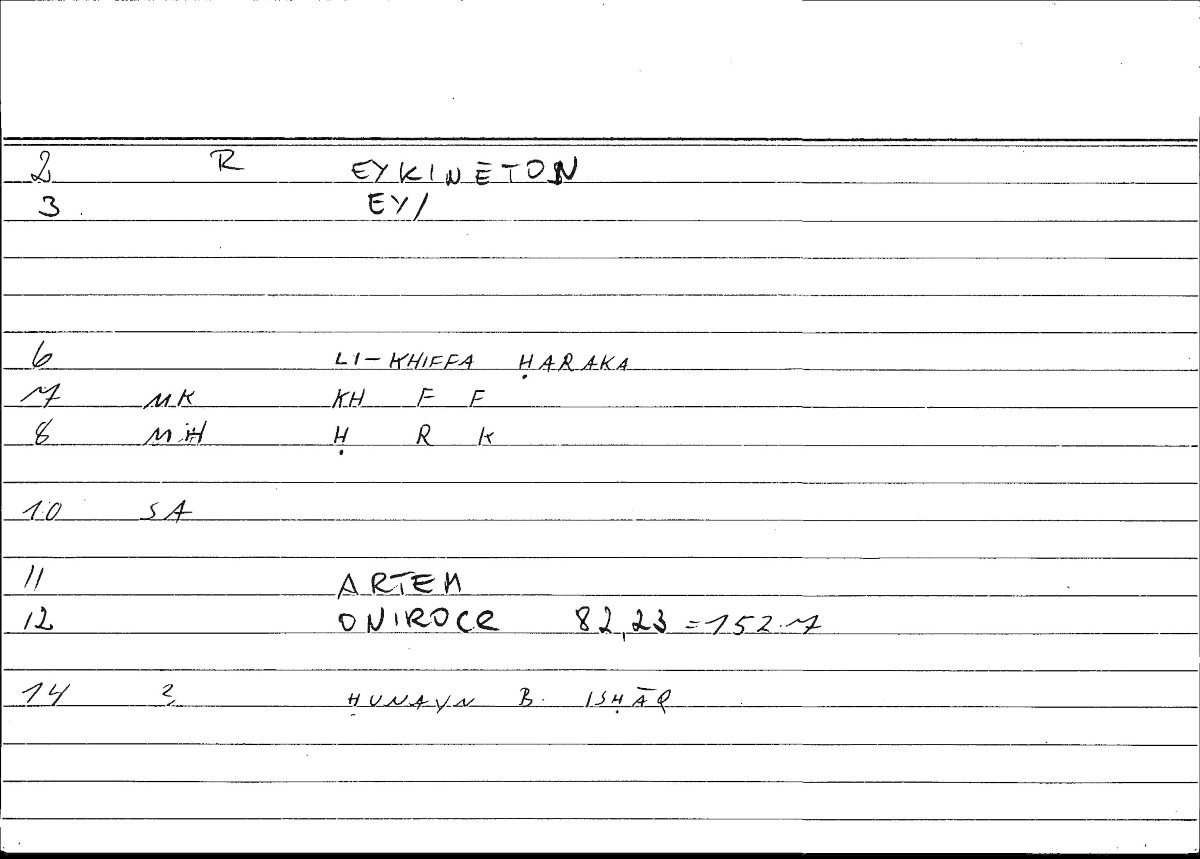 2 R EYKINETON
3 EY/
6 LI-KHIFFA ḤARAKA
7 MK KH F F
8 MH Ḥ R K
10 SA
11 ARTEM
12 ONIROCR 82,23 = 152.7
14 2 ḤUNAYN B. ISḤĀQ